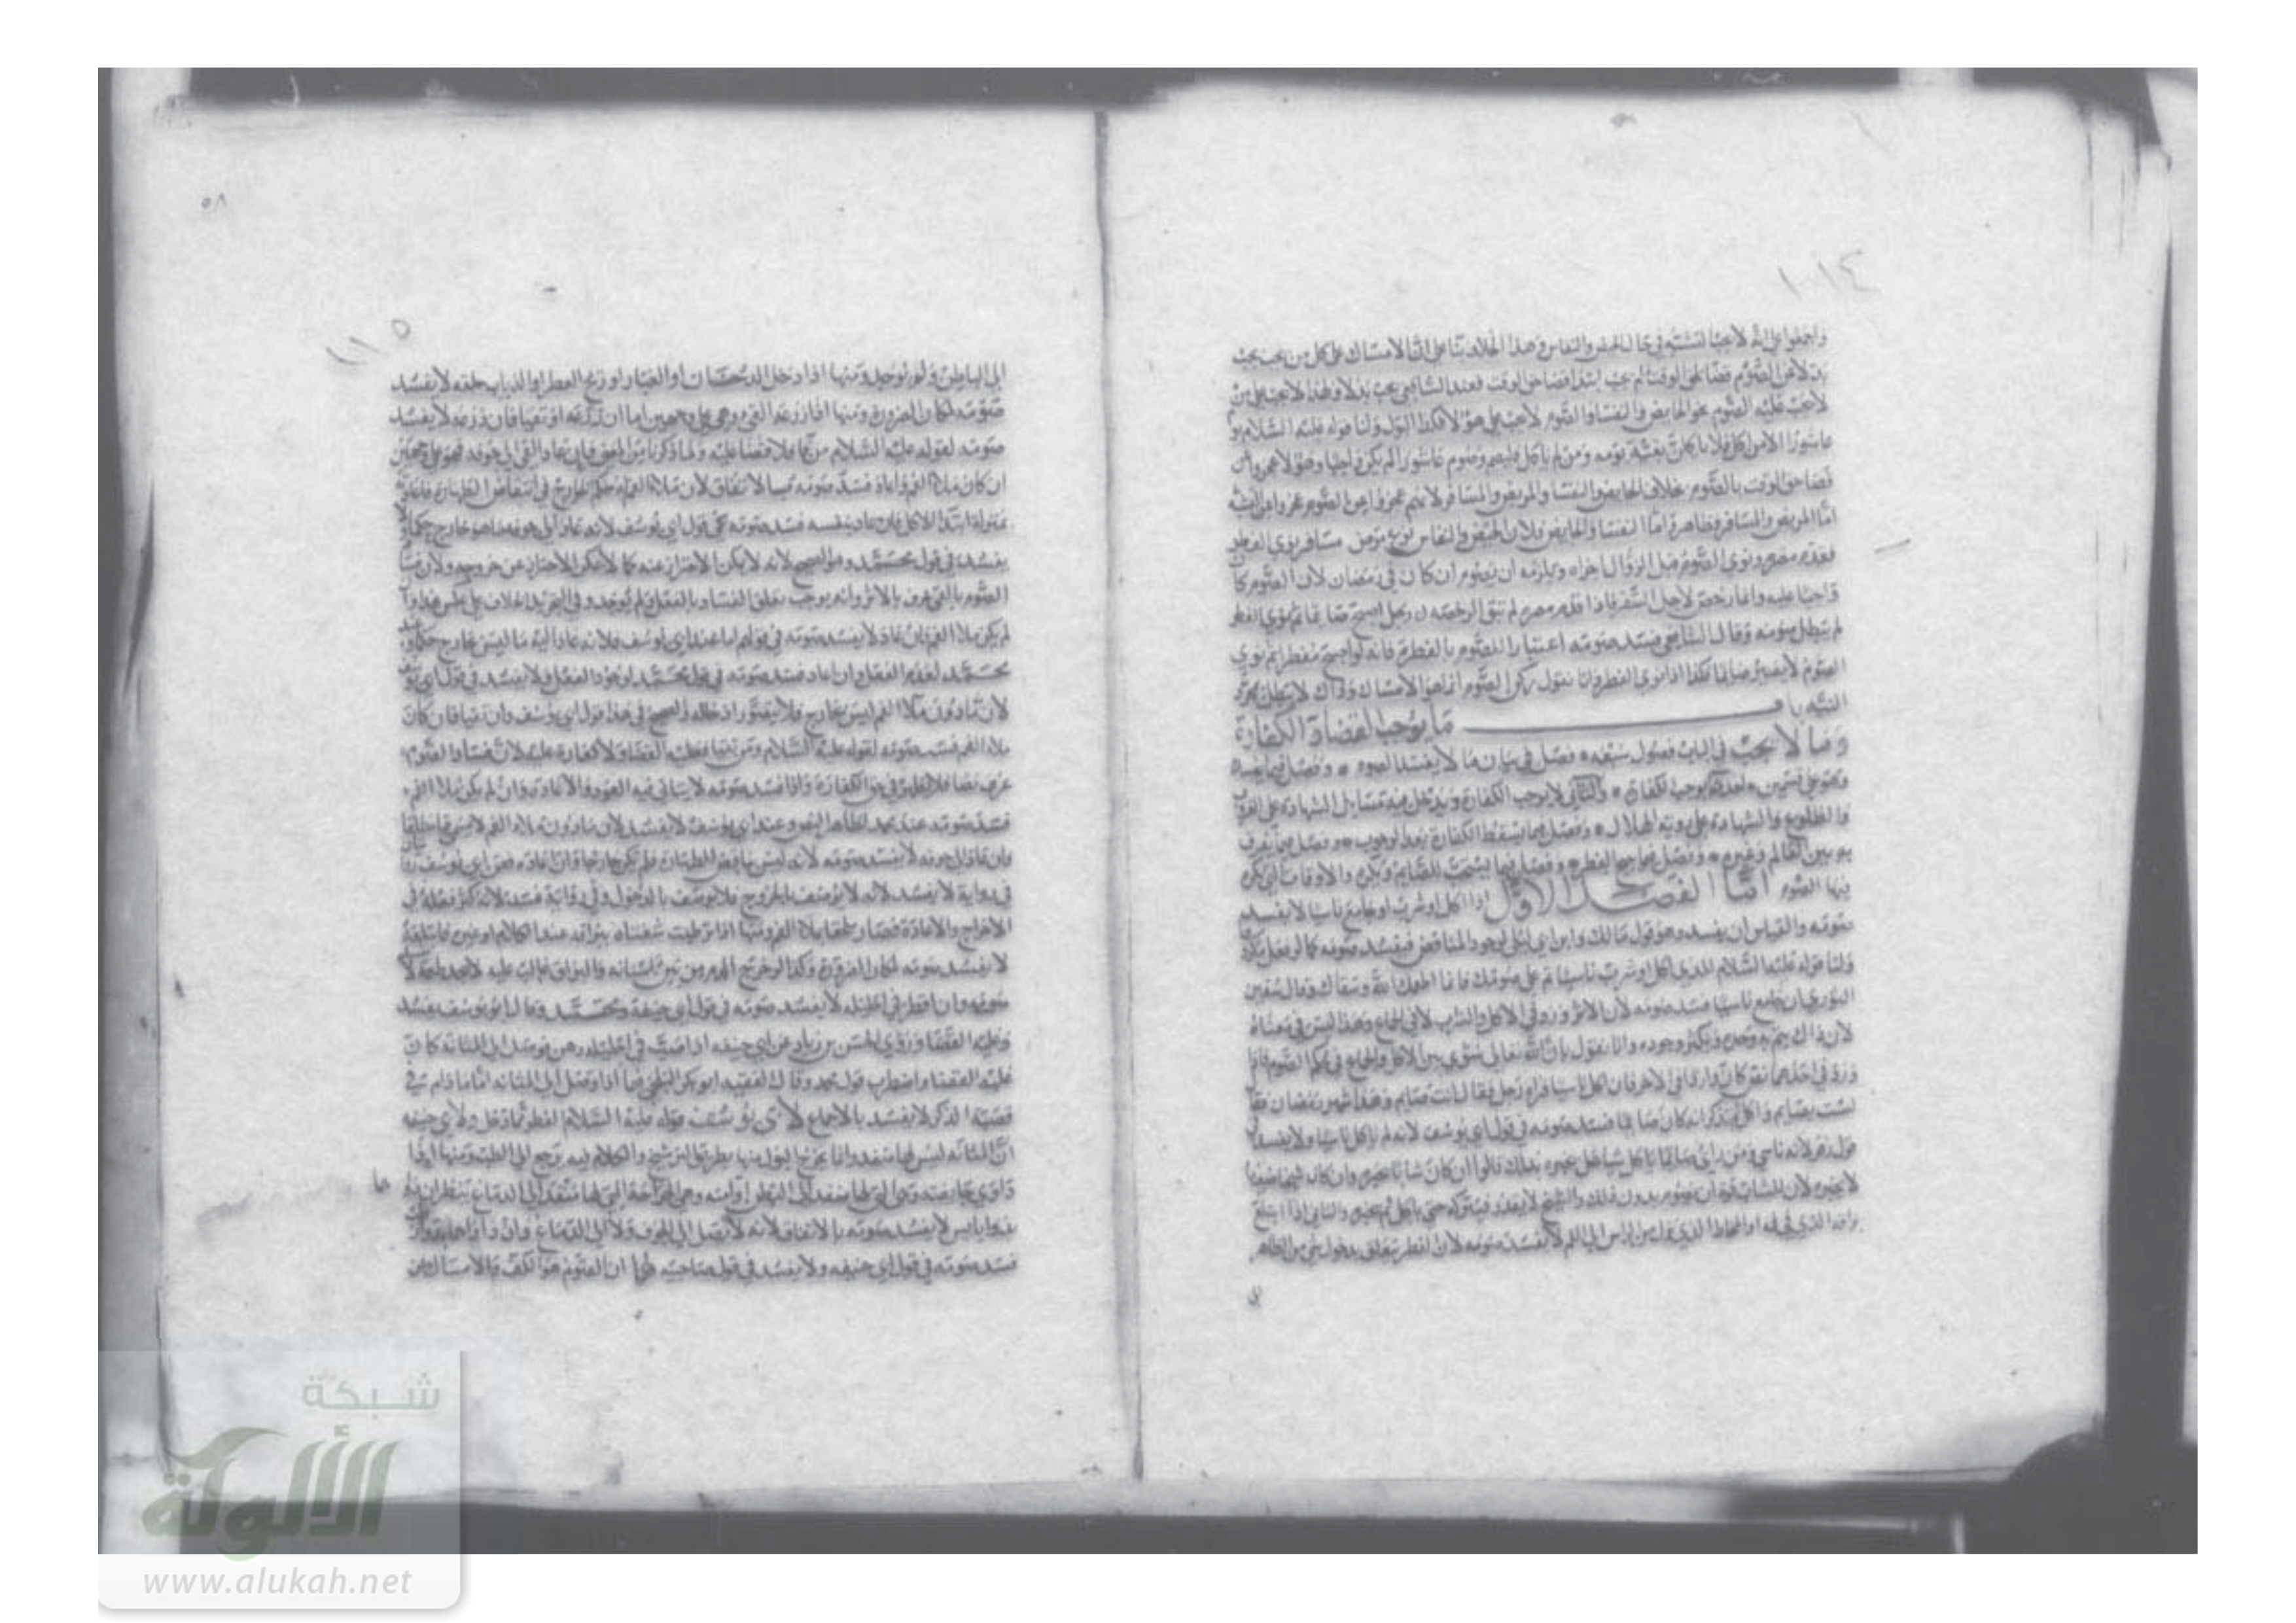 ١٠١٤
واجمعوا على انه لا يجب التشبه في حال الحيض والنفاس وهذا الخلاف بنا على ان الامساك على كل من يجب
بدلا عن الصوم
لا يجب عليه الصوم نحو الحايض والنفسا والصوم لا يجب على هولا فكذا البدل ولنا قوله عليه السلام
عاشورا الا من اكل فلا ياكلن بقية يومه ومن لم ياكل فليصم وصوم عاشورا
قضا حق الوقت بالصوم بخلاف الحايض والنفسا والمريض والمسافر لانهم عجزوا عن الصوم
اما المريض والمسافر فظاهر واما النفسا والحايض ولان الحيض والنفاس نوع مرض مسافر نوى الفطر
فقدم مصره ونوى الصوم قبل الزوال اجزاه ويلزمه ان يصوم ان كان في رمضان لان الصوم كان
واجبا عليه وانما رخص لاجل السفر فاذا قدم مصره لم تبق الرخصة رجل اصبح صايما ثم نوى الفطر
لم يبطل صومه وقال الشافعي يفسد صومه اعتبارا للصوم بالفطر فانه لو اصبح مفطرا ثم نوى
الصوم لا يصير صايما فكذا اذا نوى الفطر وانا نقول ركن الصوم انما هو الامساك وذاك لا يبطل بمجرد
النية باب ما يوجب القضا والكفارة
وما لا يجب في الباب فصول سبعة فصل في بيان ما لا يفسد الصوم وفصل فيما يفسد
وهو على قسمين احدهما يوجب الكفارة والثاني لا يوجب الكفارة ويدخل فيه مسايل الشهادة على
والطلوع والشهادة على روية الهلال وفصل فيما يسقط الكفارة بعد الوجوب وفصل فيما يفرق
به بين العالم وغيره وفصل فيما يبيح الفطر وفصل فيما يستحب للصايم ويكره والاوقات التي يكره
فيها الصوم اما الفصل الاول اذا اكل او شرب او جامع ناسيا لا يفسد
صومه والقياس ان يفسد وهو قول مالك وابن ابي ليلى لوجود المناقض فيفسد صومه كما لو فعل
ولنا قوله عليه السلام للذي اكل او شرب ناسيا تم على صومك فانما اطعمك الله وسقاك وقال سفين
الثوري ان جامع ناسيا فسد صومه لان الاثر ورد في الاكل والشرب لا في الجماع وهذا ليس في معناه
لان ذاك وجوده وانا نقول بان الله تعالى سوى بين الاكل والجماع في حكم الصوم فاذا
ورد في احدهما نص كان واردا في الاخر فان اكل ناسيا فراه رجل فقال انت صايم وهذا شهر رمضان فقال
لست بصايم واكل ثم تذكر انه كان صايما فسد صومه في قول ابي يوسف لانه لم ياكل ناسيا ولا يفسد في
قول زفر لانه ناسي ومن راى صايما ياكل ناسيا هل يخبره بذلك قالوا ان كان شابا يخبره وان كان شيخا ضعيفا
لا يخبره لان للشاب قوة ان يصوم بدون ذلك والشيخ لا يقدر فيتركه حتى ياكل ثم يخبره والثاني اذا ابتلع
بزاقه الذي في فمه او المخاط الذي ينزل من الراس الى الفم لا يفسد صومه لان الفطر يتعلق بدخول شي من الظاهر
٥٨
١١٥
الى الباطن ولم يوجد ومنها اذا دخل الدخان او الغبار او ريح العطر او الذباب حلقه لا يفسد
صومه لمكان الضرورة ومنها اذا ذرعه القي وهي على وجهين اما ان ذرعه او تقيا فان ذرعه لا يفسد
صومه لقوله عليه السلام من قا فلا قضا عليه ولما ذكرنا من المعنى فان عاد القي الى جوفه فهو على وجهين
ان كان ملا الفم واعاده فسد صومه بالاتفاق لان ملا الفم له حكم الخارج في انتقاض الطهارة فاعادته
بمنزلة ابتدا الاكل فان عاد بنفسه فسد صومه في قول ابي يوسف لانه عاد الى جوفه ما هو خارج حكما ولا
يفسد في قول محمد وهو الصحيح لانه لا يمكن الاحتراز عنه كما لا يمكن الاحتراز عن خروجه ولان فساد
الصوم بالقي عرف بالاثر وانه يوجب تعلق الفساد بالفعل ولم يوجد وفي التجريد الخلاف على عكس هذا وان
لم يكن ملا الفم فان عاد لا يفسد صومه في قولهم اما عند ابي يوسف فلانه عاد اليه ما ليس بخارج حكما وعند
محمد لعدم الفعل وان اعاد فسد صومه في قول محمد لوجود الفعل ولا يفسد في قول ابي يوسف
لان ما دون ملا الفم ليس بخارج فلا يتصور ادخاله والصحيح في هذا قول ابي يوسف وان تقيا فان كان
ملا الفم فسد صومه لقوله عليه السلام ومن تقيا فعليه القضا ولا كفارة عليه لان فساد الصوم
عرف نصا فلا يظهر في حق الكفارة واذا فسد صومه لا يتاتى فيه العود والاعادة وان لم يكن ملا الفم
فسد صومه عند محمد لظاهر النص وعند ابي يوسف لا يفسد لان ما دون ملا الفم لا يسمى
وان عاد الى جوفه لا يفسد صومه لانه ليس بناقض للطهارة فلم يكن خارجا وان اعاده فعن ابي يوسف
في رواية لا يفسد لانه لا يوصف بالخروج فلا يوصف بالدخول وفي رواية فسد لانه كثر فعله في
الاخراج والاعادة فصار ملحقا بملا الفم ومنها اذا ترطبت شفتاه ببزاقه عند الكلام او غيره فابتلعه
لا يفسد صومه لمكان الضرورة وكذا لو خرج الدم من بين اسنانه والبزاق غالب عليه
صومه وان اقطر في احليله لا يفسد صومه في قول ابي حنيفة ومحمد وقال ابو يوسف يفسد
وعليه القضا وروى الحسن بن زياد عن ابي حنيفة اذا صب في احليله دهن فوصل الى المثانة كان
عليه القضا واضطرب قول محمد وقال الفقيه ابو بكر البلخي هذا اذا وصل الى المثانة اما ما دام في
قصبة الذكر لا يفسد بالاجماع لابي يوسف قوله عليه السلام الفطر مما دخل ولابي حنيفة
ان المثانة ليس لها منفذ وانما يخرج البول منها بطريق الترشح والكلام فيه يرجع الى الطب ومنها اذا
داوى جايفته وهي التي لها منفذ الى البطن او امته وهي الجراحة التي لها منفذ الى الدماغ ينظر ان
بدوا يابس لا يفسد صومه بالاتفاق لانه لا يصل الى الجوف ولا الى الدماغ وان داواها بدوا
فسد صومه في قول ابي حنيفة ولا يفسد في قول صاحبيه لهما ان الصوم هو الكف والامساك
شبكة
الألوكة
www.alukah.net